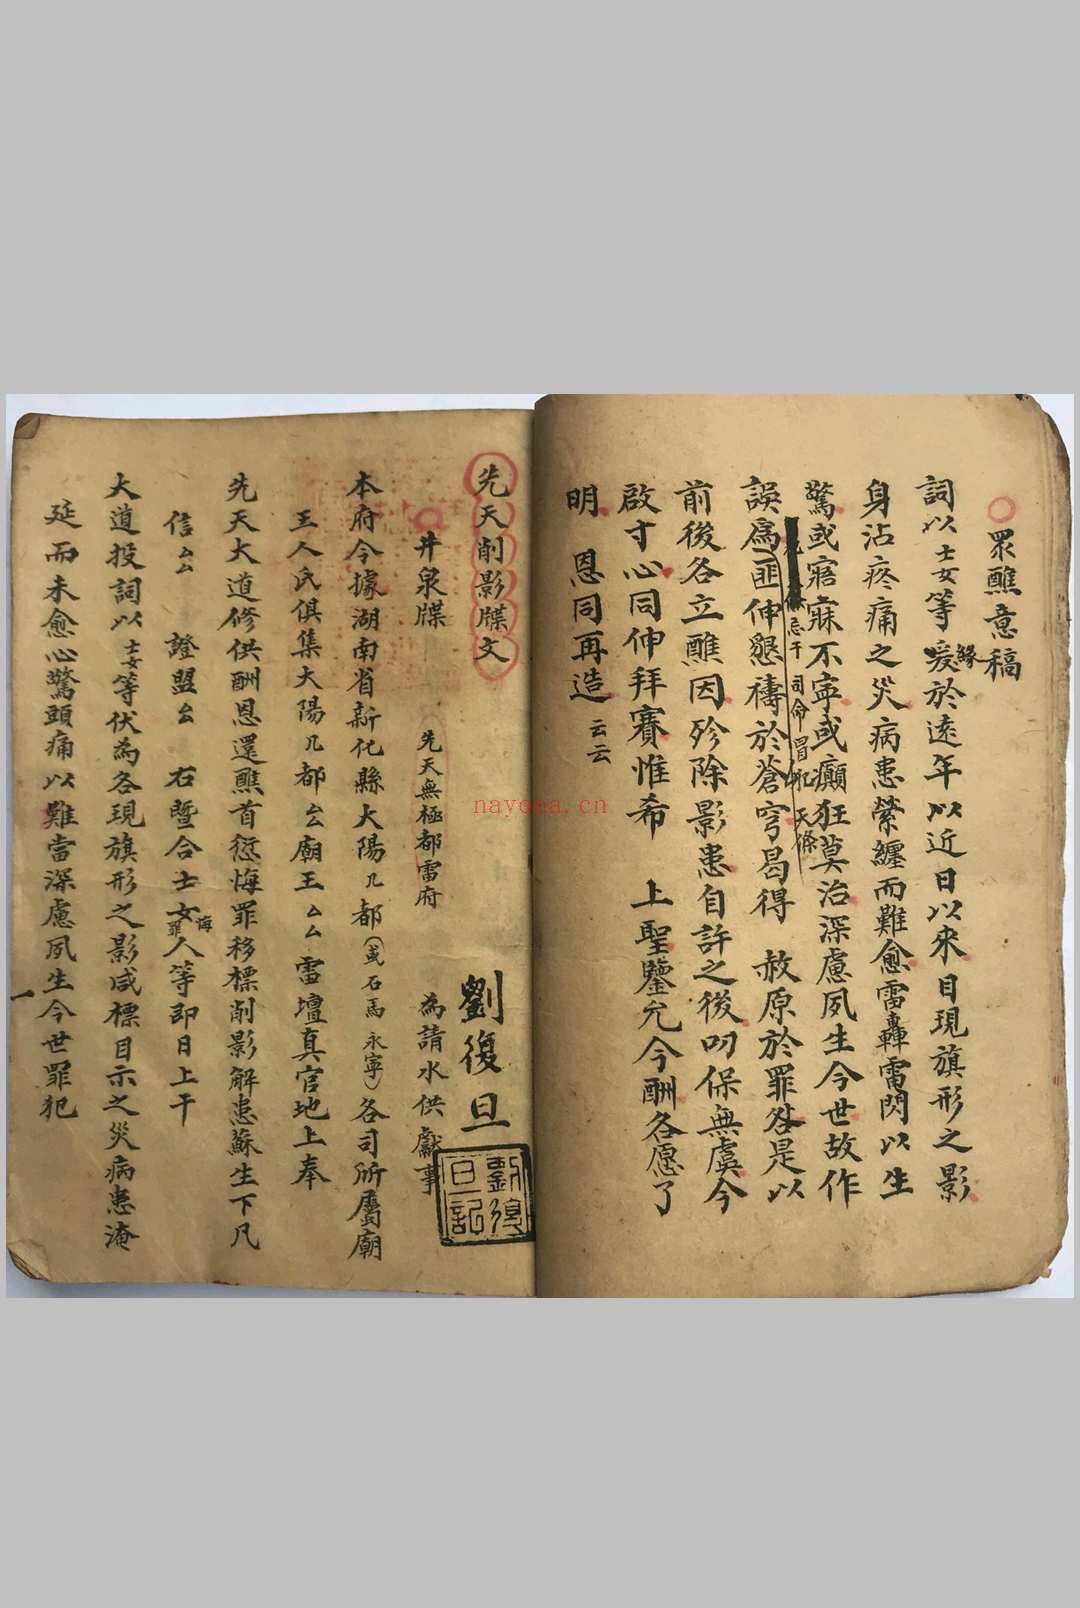 眾醮意稿
詞以士女等爰緣於遠年以近日以來目現旗形之影
身沾疼痛之災病患縈纏而難愈雷轟電閃以生
驚或寤寐不寧或癲狂莫治深慮夙生今世故作
誤爲忌干司命冒犯天條匪伸懇禱於蒼穹曷得 赦原於罪咎是以
前後各立醮因殄除影患自許之後叨保無虞今
啟寸心同伸拜賽惟希 上聖鑒允今酬各愿了
明 恩同再造云云
先天削影牒文
劉復旦
劉復旦記
井泉牒 先天無極都雷府 為請水供獻事
本府今據湖南省新化縣大陽几都(或石馬永寧)各司所屬廟
王人氏俱集大陽几都厶廟王厶厶雷壇真官地上奉
先天大道修供酬恩還醮首愆悔罪移標削影解患蘇生下凡
信厶厶 證盟厶 右暨合士女悔罪人等即日上干
大道投詞以士女等伏為各現旗形之影咸標目示之災病患淹
延而未愈心驚頭痛以難當深慮夙生今世罪犯
nayona.cn